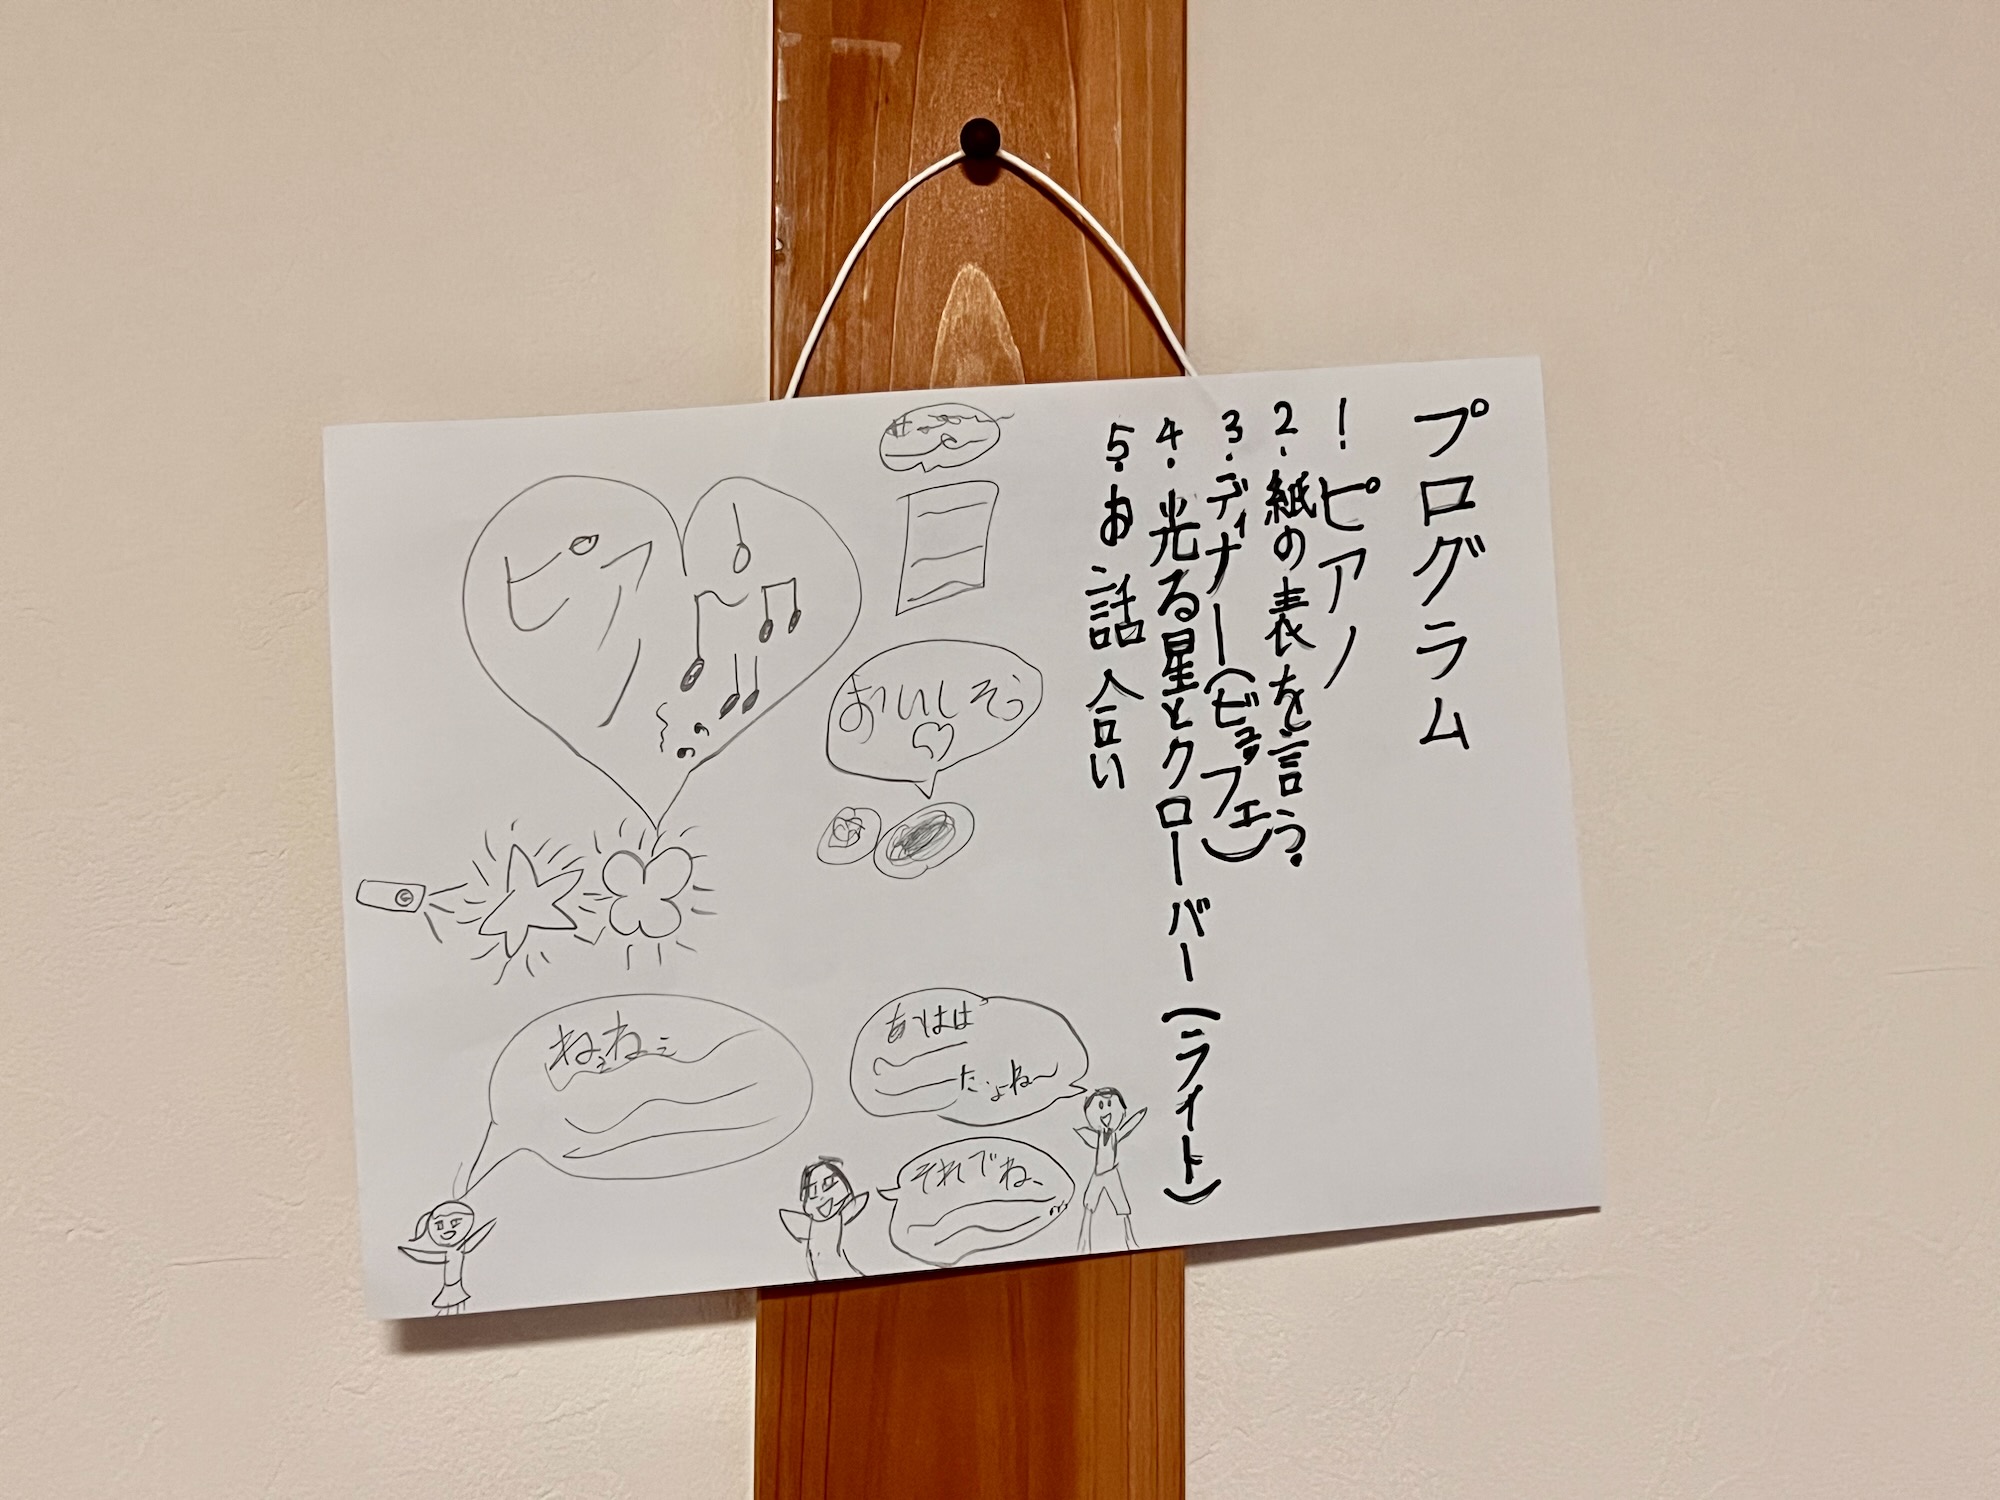 プログラム
1.ピアノ
2.紙の表を言う。
3.ディナー(ビュッフェ)
4.光る星とクローバー(ライト)
5.お話合い
おいしそう
ピアノ
あはは
だよね〜
それでね、
ねぇねぇ